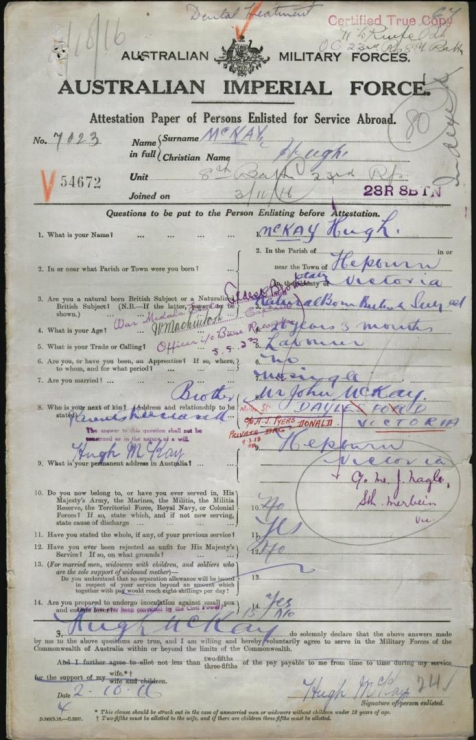 Dental Treatment
Certified True Copy
AUSTRALIAN MILITARY FORCES.
AUSTRALIAN IMPERIAL FORCE.
Attestation Paper of Persons Enlisted for Service Abroad.
80
No. 7023 Name in full Surname McKAY
Christian Name Hugh
V 54672
Unit 8th Battn 23rd Rf.
Joined on 3/11/16
23R 8BTN
Questions to be put to the Person Enlisting before Attestation.
1. What is your Name? McKAY Hugh.
2. In or near what Parish or Town were you born? In the Parish of in or
near the Town of Hepburn
in the County of Victoria
3. Are you a natural born British Subject or a Naturalized
British Subject? (N.B.—If the latter, papers to be
shown.) Natural Born British Subject
4. What is your Age? 20 years 3 months
5. What is your Trade or Calling? Labourer
Officer i/c Base Records
6. Are you, or have you been, an Apprentice? If so, where,
to whom, and for what period? No
7. Are you married? Single
8. Who is your next of kin? (Address and relationship to be
stated) Brother Mr John McKAY.
Parents Deceased
DONALD
VICTORIA
The answer to this question shall not be
construed as in the nature of a will.
Hugh McKay
9. What is your permanent address in Australia? Hepburn
Victoria
Sth Merbein
Vic
10. Do you now belong to, or have you ever served in, His
Majesty's Army, the Marines, the Militia, the Militia
Reserve, the Territorial Force, Royal Navy, or Colonial
Forces? If so, state which, and if not now serving,
state cause of discharge 10. No
11. Have you stated the whole, if any, of your previous service? 11. Yes
12. Have you ever been rejected as unfit for His Majesty's
Service? If so, on what grounds? 12. No
13. (For married men, widowers with children, and soldiers who
are the sole support of widowed mother)—
Do you understand that no separation allowance will be issued
in respect of your service beyond an amount which
together with pay would reach eight shillings per day? 13.
14. Are you prepared to undergo inoculation against small pox
and enteric fever? 14. Yes
I, Hugh McKay do solemnly declare that the above answers made
by me to the above questions are true, and I am willing and hereby voluntarily agree to serve in the Military Forces of the
Commonwealth of Australia within or beyond the limits of the Commonwealth.
And I further agree to allot not less than two-fifths three-fifths of the pay payable to me from time to time during my service
for the support of my wife.* wife and children.†
Date 2-10-16
Hugh McKay
Signature of person enlisted.
* This clause should be struck out in the case of unmarried men or widowers without children under 18 years of age.
† Two-fifths must be allotted to the wife, and if there are children three-fifths must be allotted.